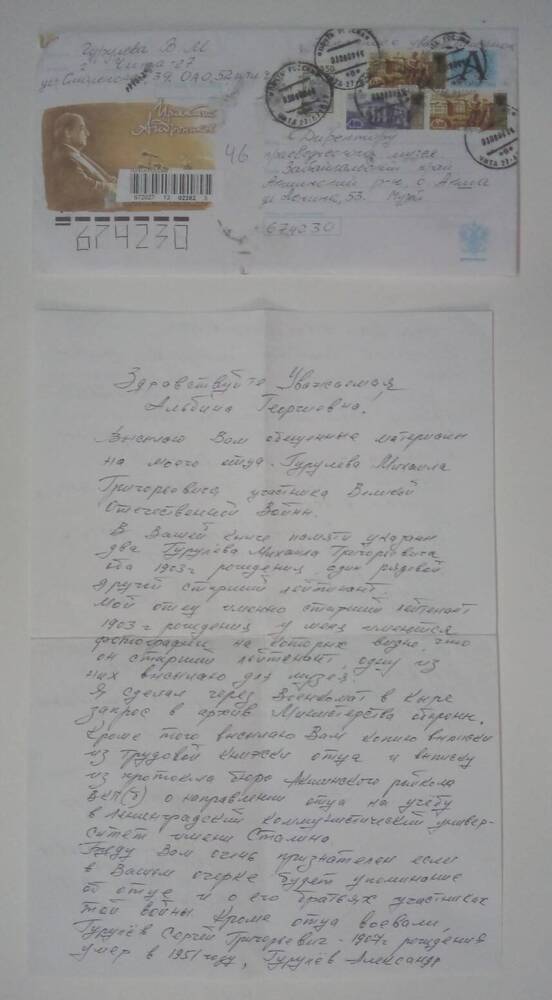 Гурулева В М
г. Чита-27
39, ОАО,
Ираклий
Андроников
46
672027 13 02282 5
674230
Директору
краеведческого музея
Забайкальский край
Акшинский р-н, с Акша
ул Ленина, 53. Музей
674230
Здравствуйте Уважаемая
Альбина Георгиевна!
Высылаю Вам обещенные материалы
на моего отца - Гурулёва Михаила
Григорьевича, участника Великой
Отечественной Войны.
В Вашей книге памяти указаны
два Гурулёва Михаила Григорьевича
оба 1903 г рождения один рядовой
другой старший лейтинант.
Мой отец именно старший лейтенант
1903 г рождения у меня имеются
фотографии на которых видно, что
он старший лейтенант, одну из
них высылаю для музея.
Я сделал через Военкомат в Кыре
запрос в архив Министерства обороны.
Кроме того высылаю Вам копию выписки
из трудовой книжки отца и выписку
из протокола бюро Акшинского райкома
ВКП(б) о направлении отца на учёбу
в Ленинградский коммунистический универ-
ситет имени Сталина
Буду Вам очень признателен если
в Вашем очерке будет упоминание
об отце и о его братьях участниках
той войны. Кроме отца воевали,
Гурулёв Сергей Григорьевич - 1907 г рождения
умер в 1951 году, Гурулёв Александр